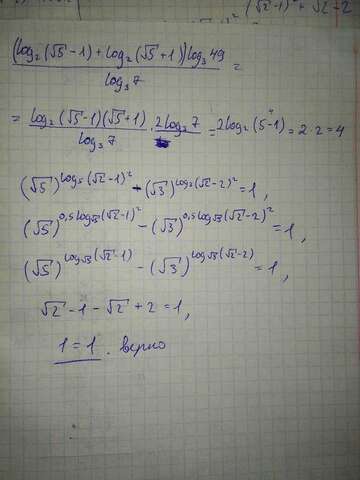 (√2-1)² + √2-2
(log₂(√5-1)+log₂(√5+1))log₃49 / log₃7 =
= log₂(√5-1)(√5+1) / log₃7 · 2log₃7 = 2log₂(5-1) = 2·2 = 4
(√5)^log₅(√2-1)² - (√3)^log₂(√2-2)² = 1,
(√5)^0,5log√5(√2-1)² - (√3)^0,5log√3(√2-2)² = 1,
(√5)^log√5(√2-1) - (√3)^log√3(√2-2) = 1,
√2 - 1 - √2 + 2 = 1,
1 = 1. верно